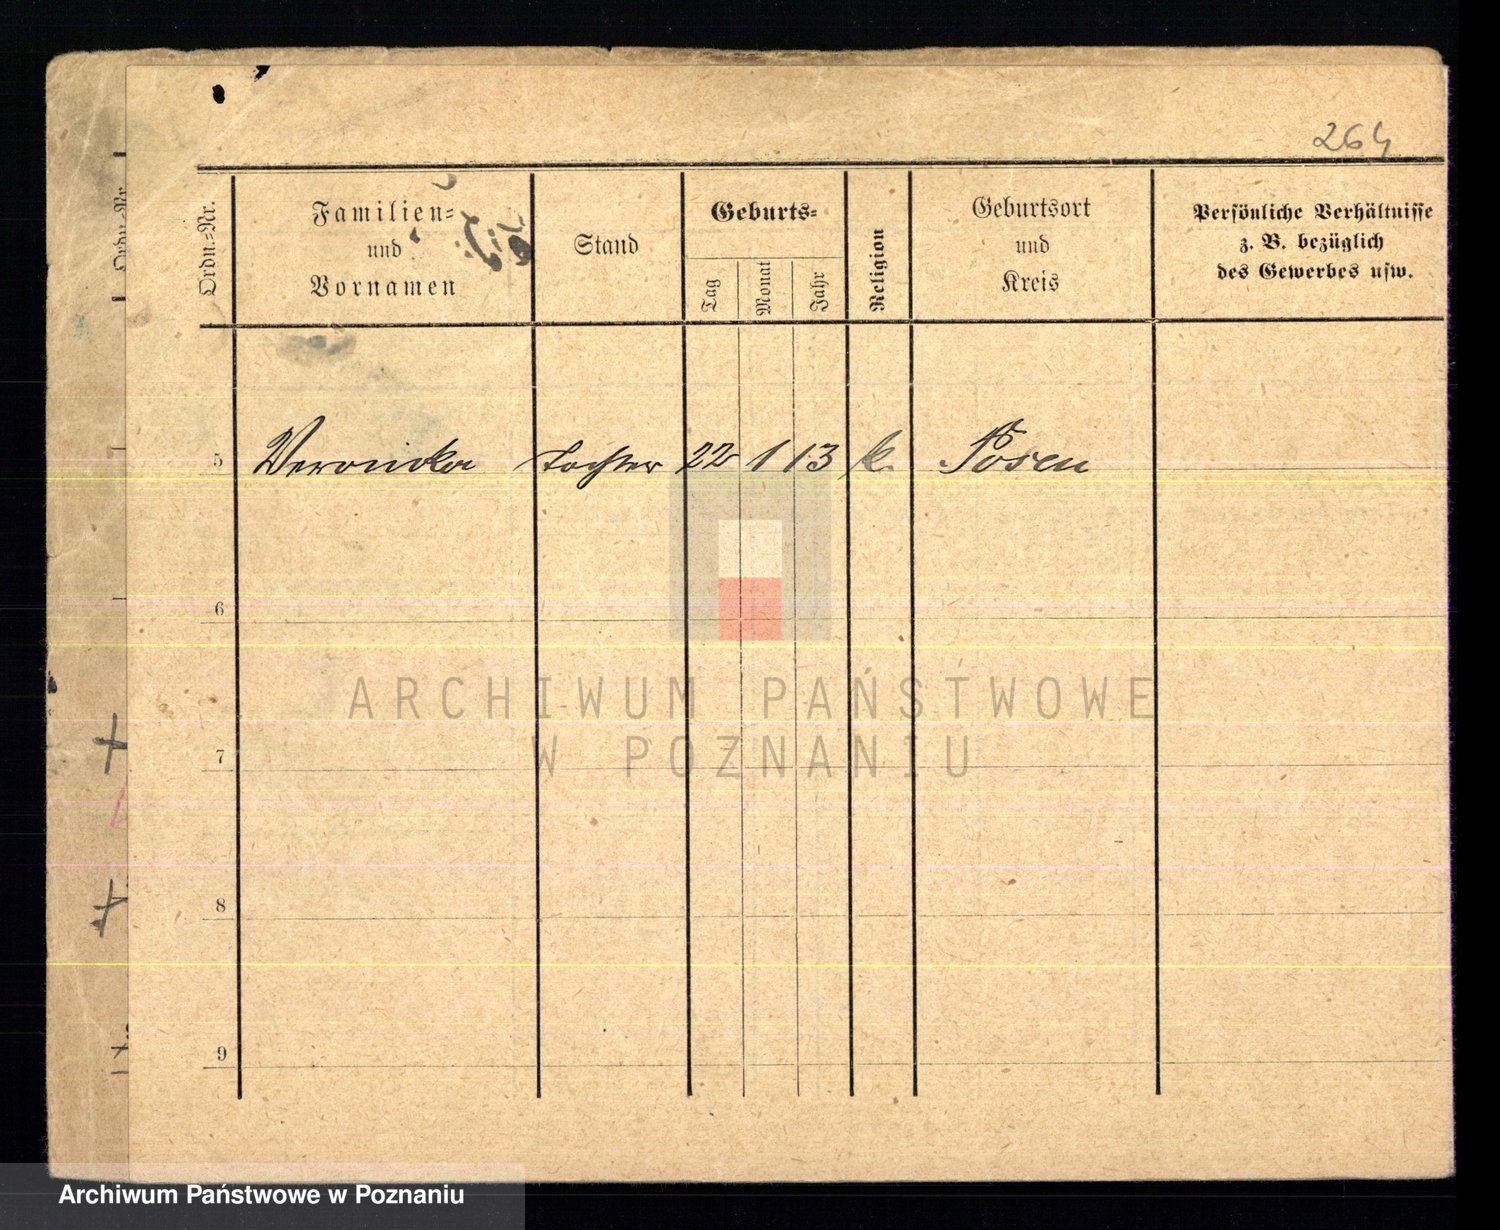 264
Ordn.-Nr.
Familien-
und
Vornamen
Stand
Geburts-
Tag
Monat
Jahr
Religion
Geburtsort
und
Kreis
Persönliche Verhältnisse
z. B. bezüglich
des Gewerbes usw.
5 Veronika Tochter 22 1 13 k. Posen
6
ARCHIWUM PAŃSTWOWE
W POZNANIU
7
8
9
Archiwum Państwowe w Poznaniu